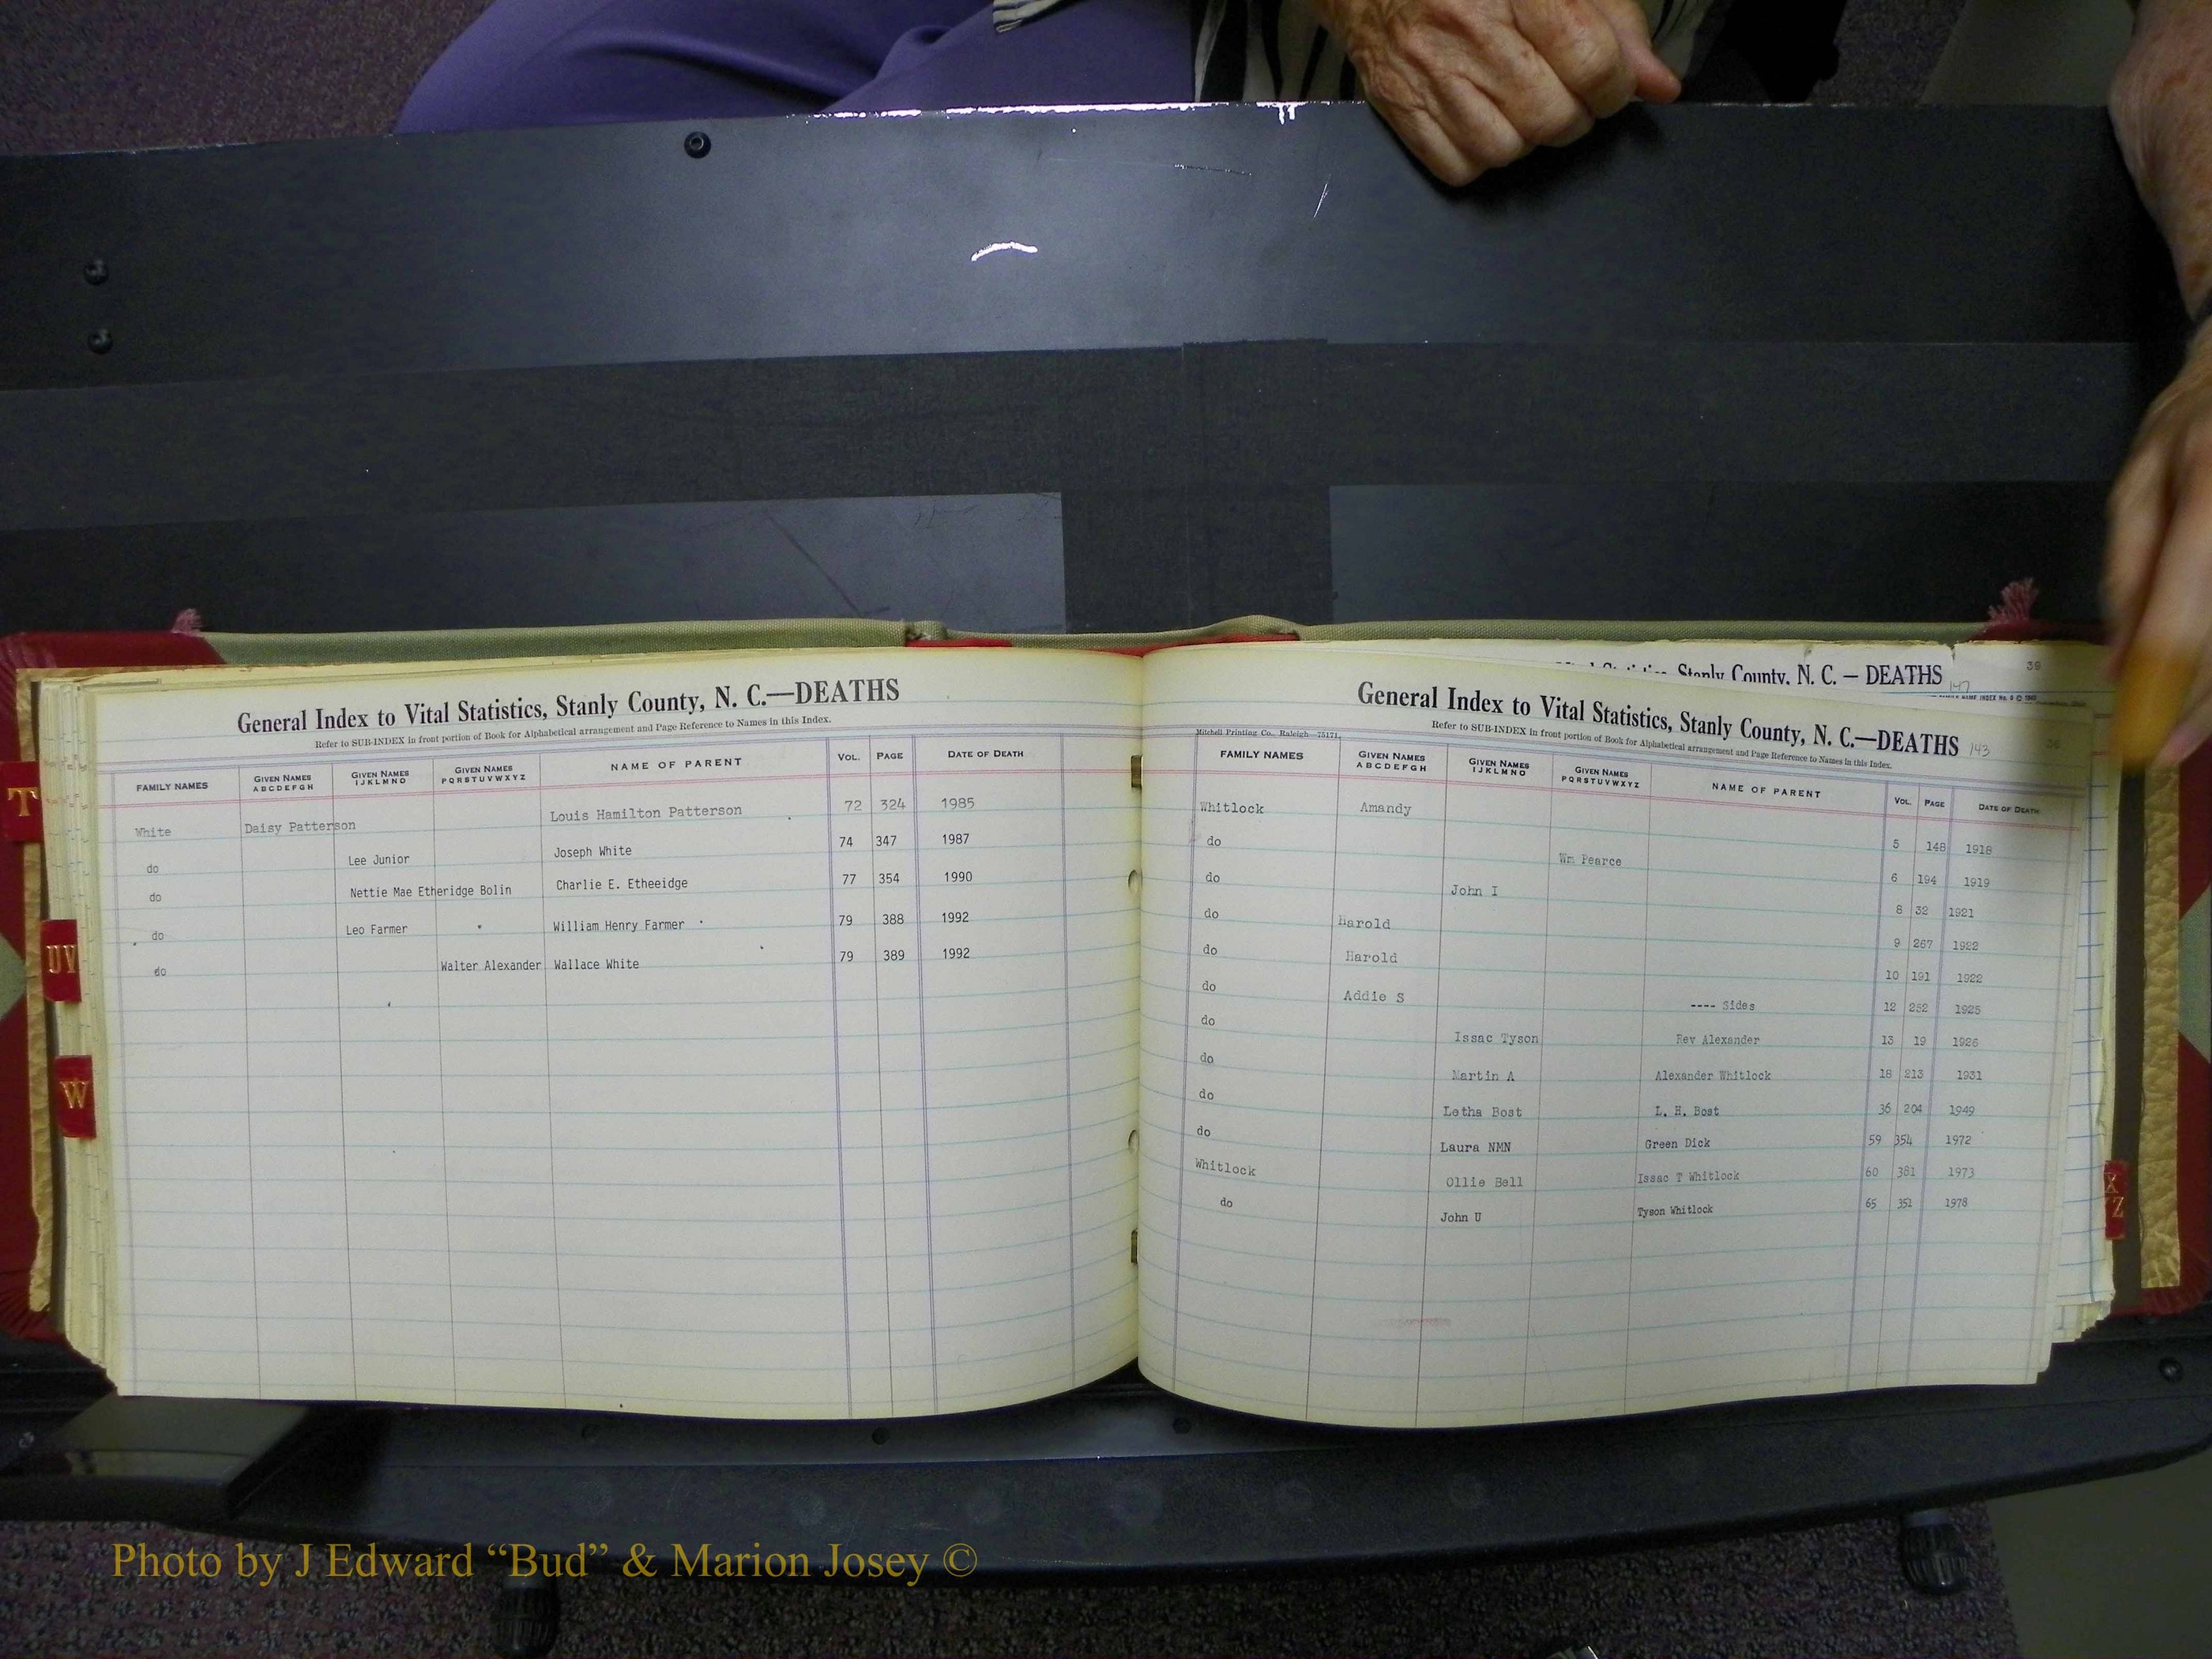 General Index to Vital Statistics, Stanly County, N. C.—DEATHS
Refer to SUB-INDEX in front portion of Book for Alphabetical arrangement and Page Reference to Names in this Index.
FAMILY NAMES GIVEN NAMES ABCDEFGH GIVEN NAMES IJKLMNO GIVEN NAMES PQRSTUVWXYZ NAME OF PARENT VOL. PAGE DATE OF DEATH
White Daisy Patterson Louis Hamilton Patterson 72 324 1985
do Lee Junior Joseph White 74 347 1987
do Nettie Mae Etheridge Bolin Charlie E. Etheeidge 77 354 1990
do Leo Farmer William Henry Farmer 79 388 1992
do Walter Alexander Wallace White 79 389 1992
T
UV
W
Stanly County, N. C. — DEATHS
39
147
General Index to Vital Statistics, Stanly County, N. C.—DEATHS 143
Refer to SUB-INDEX in front portion of Book for Alphabetical arrangement and Page Reference to Names in this Index.
Mitchell Printing Co. Raleigh—75171
FAMILY NAMES GIVEN NAMES ABCDEFGH GIVEN NAMES IJKLMNO GIVEN NAMES PQRSTUVWXYZ NAME OF PARENT VOL. PAGE DATE OF DEATH
Whitlock Amandy 5 148 1918
do Wm Pearce 6 194 1919
do John I 8 32 1921
do Harold 9 267 1922
do Harold 10 191 1922
do Addie S ---- Sides 12 252 1925
do Issac Tyson Rev Alexander 13 19 1926
do Martin A Alexander Whitlock 18 213 1931
do Letha Bost L. H. Bost 36 204 1949
do Laura NMN Green Dick 59 354 1972
Whitlock Ollie Bell Issac T Whitlock 60 381 1973
do John U Tyson Whitlock 65 351 1978
X
Z
Photo by J Edward “Bud” & Marion Josey ©